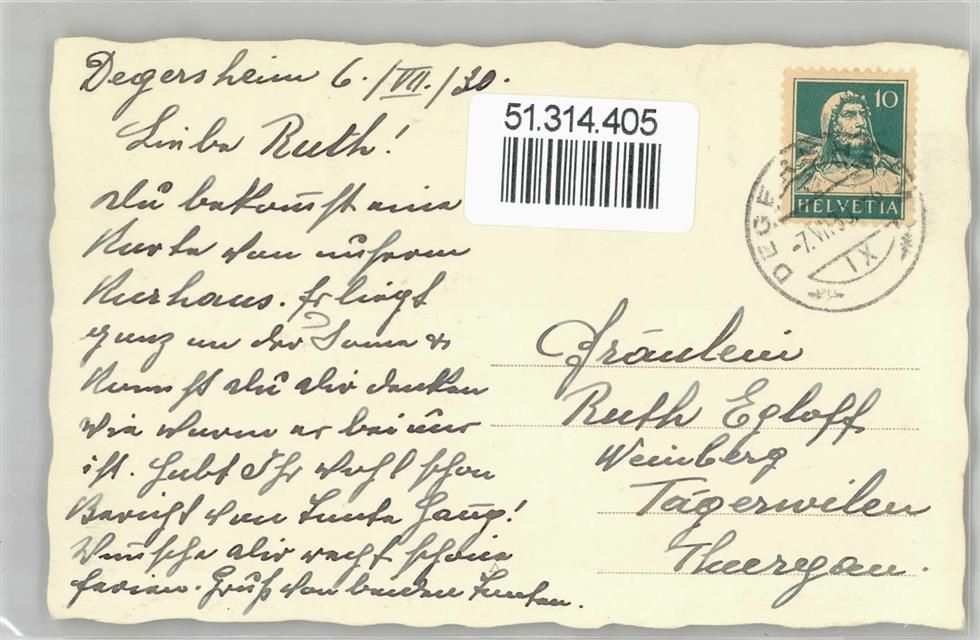 Degersheim 6./VII./30.
Liebe Ruth!
Du bekommst eine
Karte von unserem
Kurhaus. Er liegt
ganz an der Sonne &
kannst Du Dir denken
wie warm es bei uns
ist. Habt Ihr wohl schon
Bericht von Tante Haug!
Wünsche Dir recht schöne
Ferien. Gruß von beiden Tanten.
51.314.405
10
HELVETIA
DEGE
-7.VII.30
XI
Fräulein
Ruth Egloff
Weinberg
Tägerwilen
Thurgau.